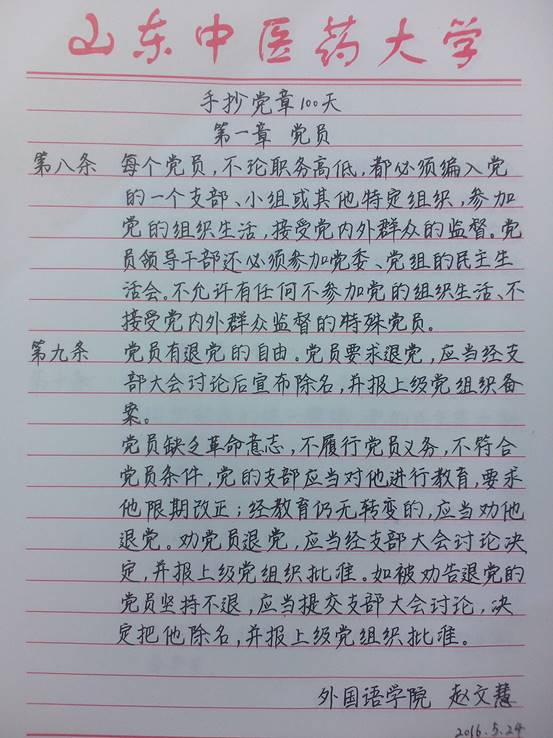 山东中医药大学
手抄党章100天
第一章 党员
第八条 每个党员，不论职务高低，都必须编入党
的一个支部、小组或其他特定组织，参加
党的组织生活，接受党内外群众的监督。党
员领导干部还必须参加党委、党组的民主生
活会。不允许有任何不参加党的组织生活、不
接受党内外群众监督的特殊党员。
第九条 党员有退党的自由。党员要求退党，应当经支
部大会讨论后宣布除名，并报上级党组织备
案。
党员缺乏革命意志，不履行党员义务，不符合
党员条件，党的支部应当对他进行教育，要求
他限期改正；经教育仍无转变的，应当劝他
退党。劝党员退党，应当经支部大会讨论决
定，并报上级党组织批准。如被劝告退党的
党员坚持不退，应当提交支部大会讨论，决
定把他除名，并报上级党组织批准。
外国语学院 赵文慧
2016.5.24